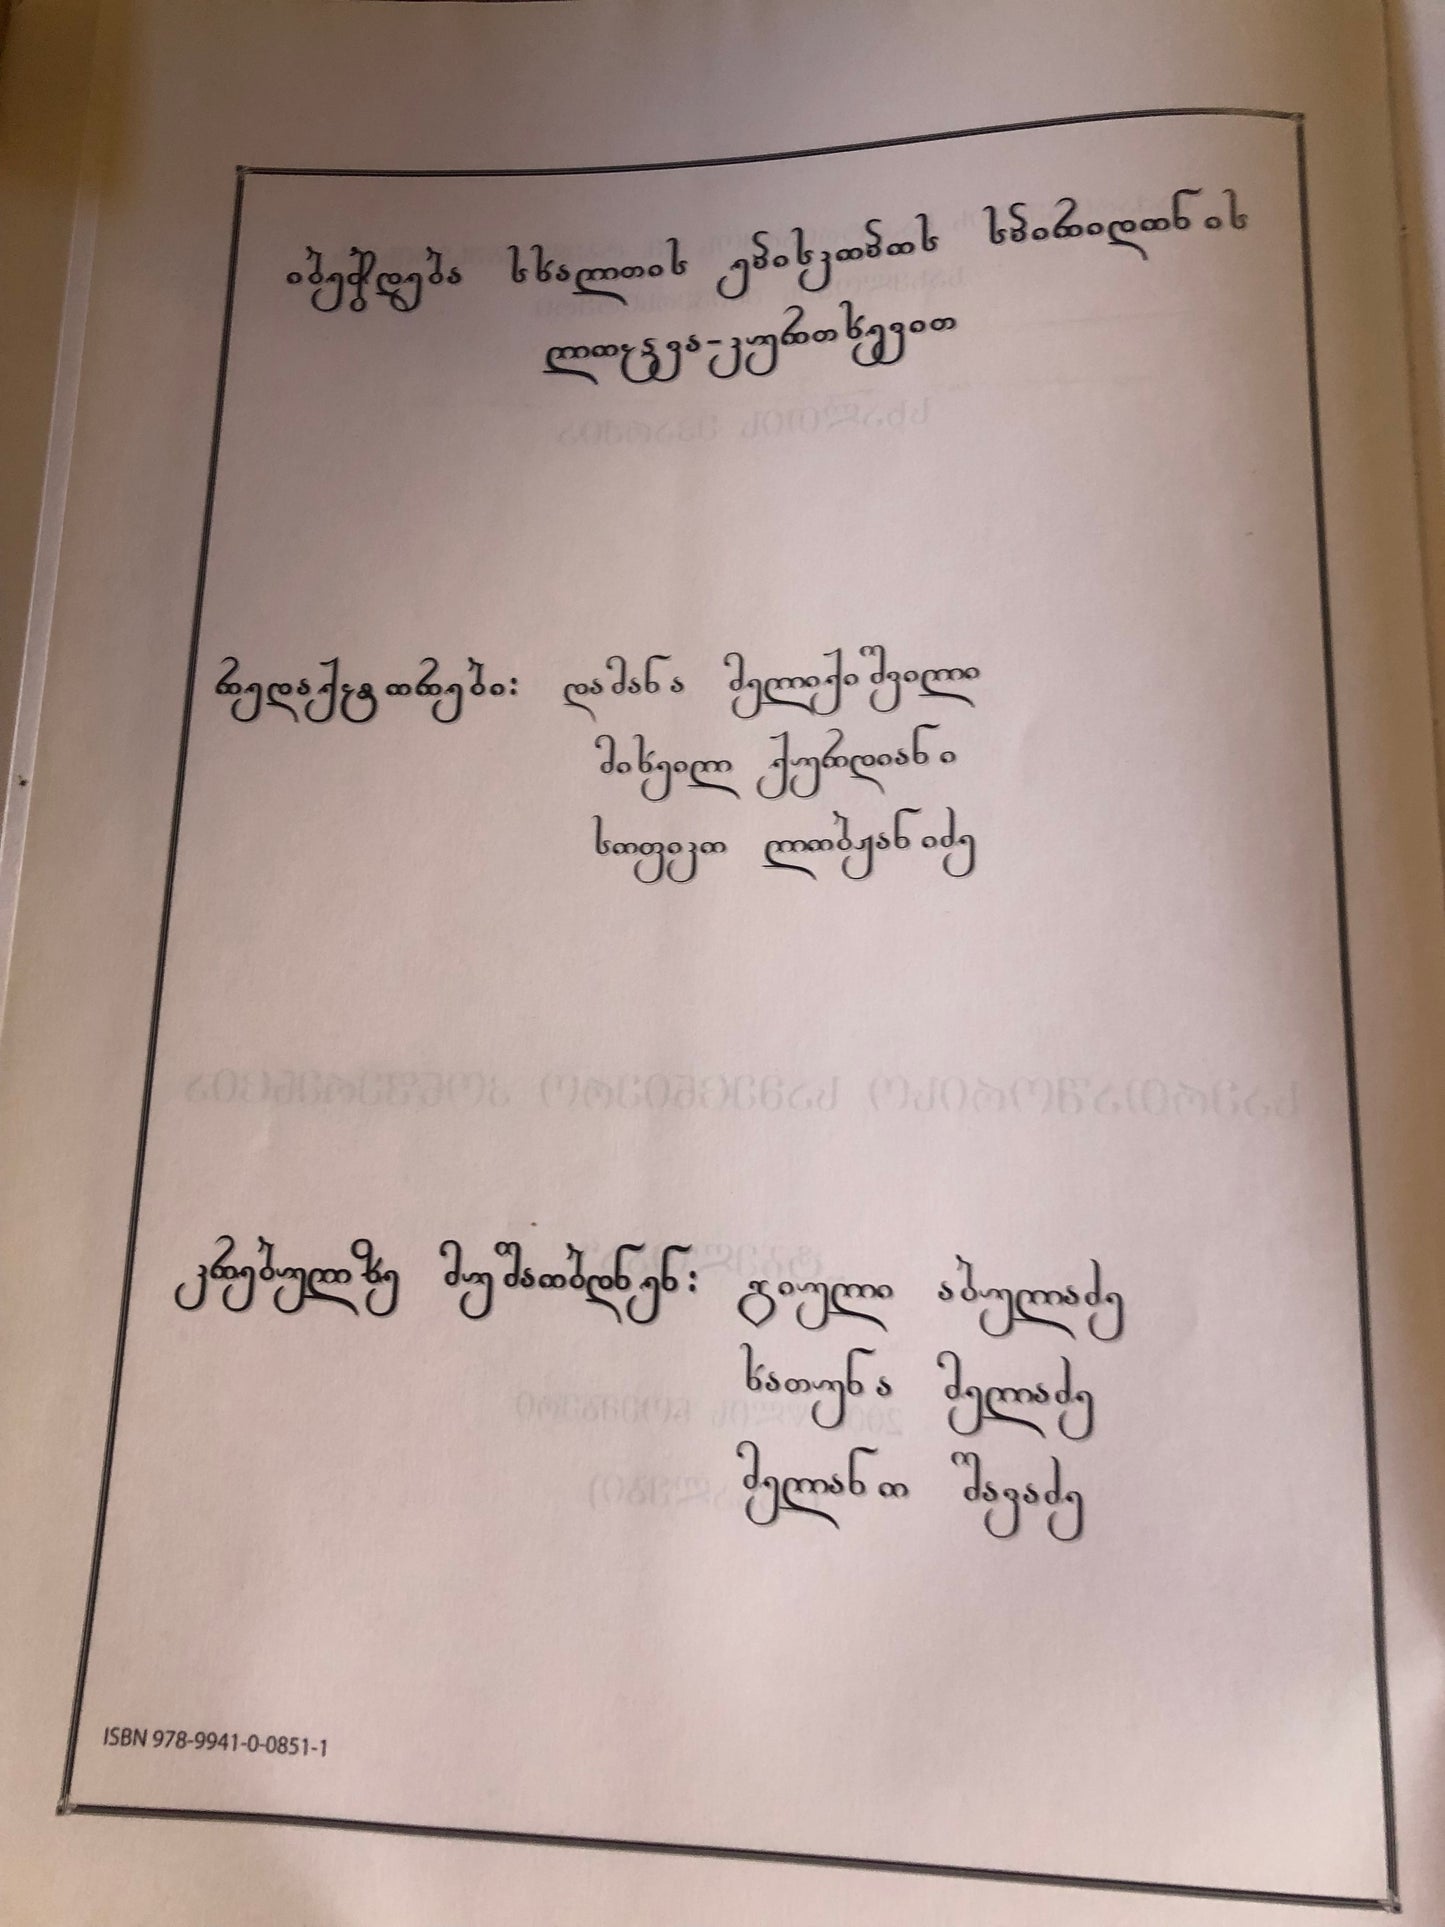 იბეჭდება სხალთის ეპისკოპოს სპირიდონის
ლოცვა-კურთხევით
რედაქტორები: დამანა მელიქიშვილი
მიხეილ ქურდიანი
სოფიკო ლობჟანიძე
კრებულზე მუშაობდნენ: გიული აბულაძე
ხათუნა მელაძე
მელანო შავაძე
ISBN 978-9941-0-0851-1